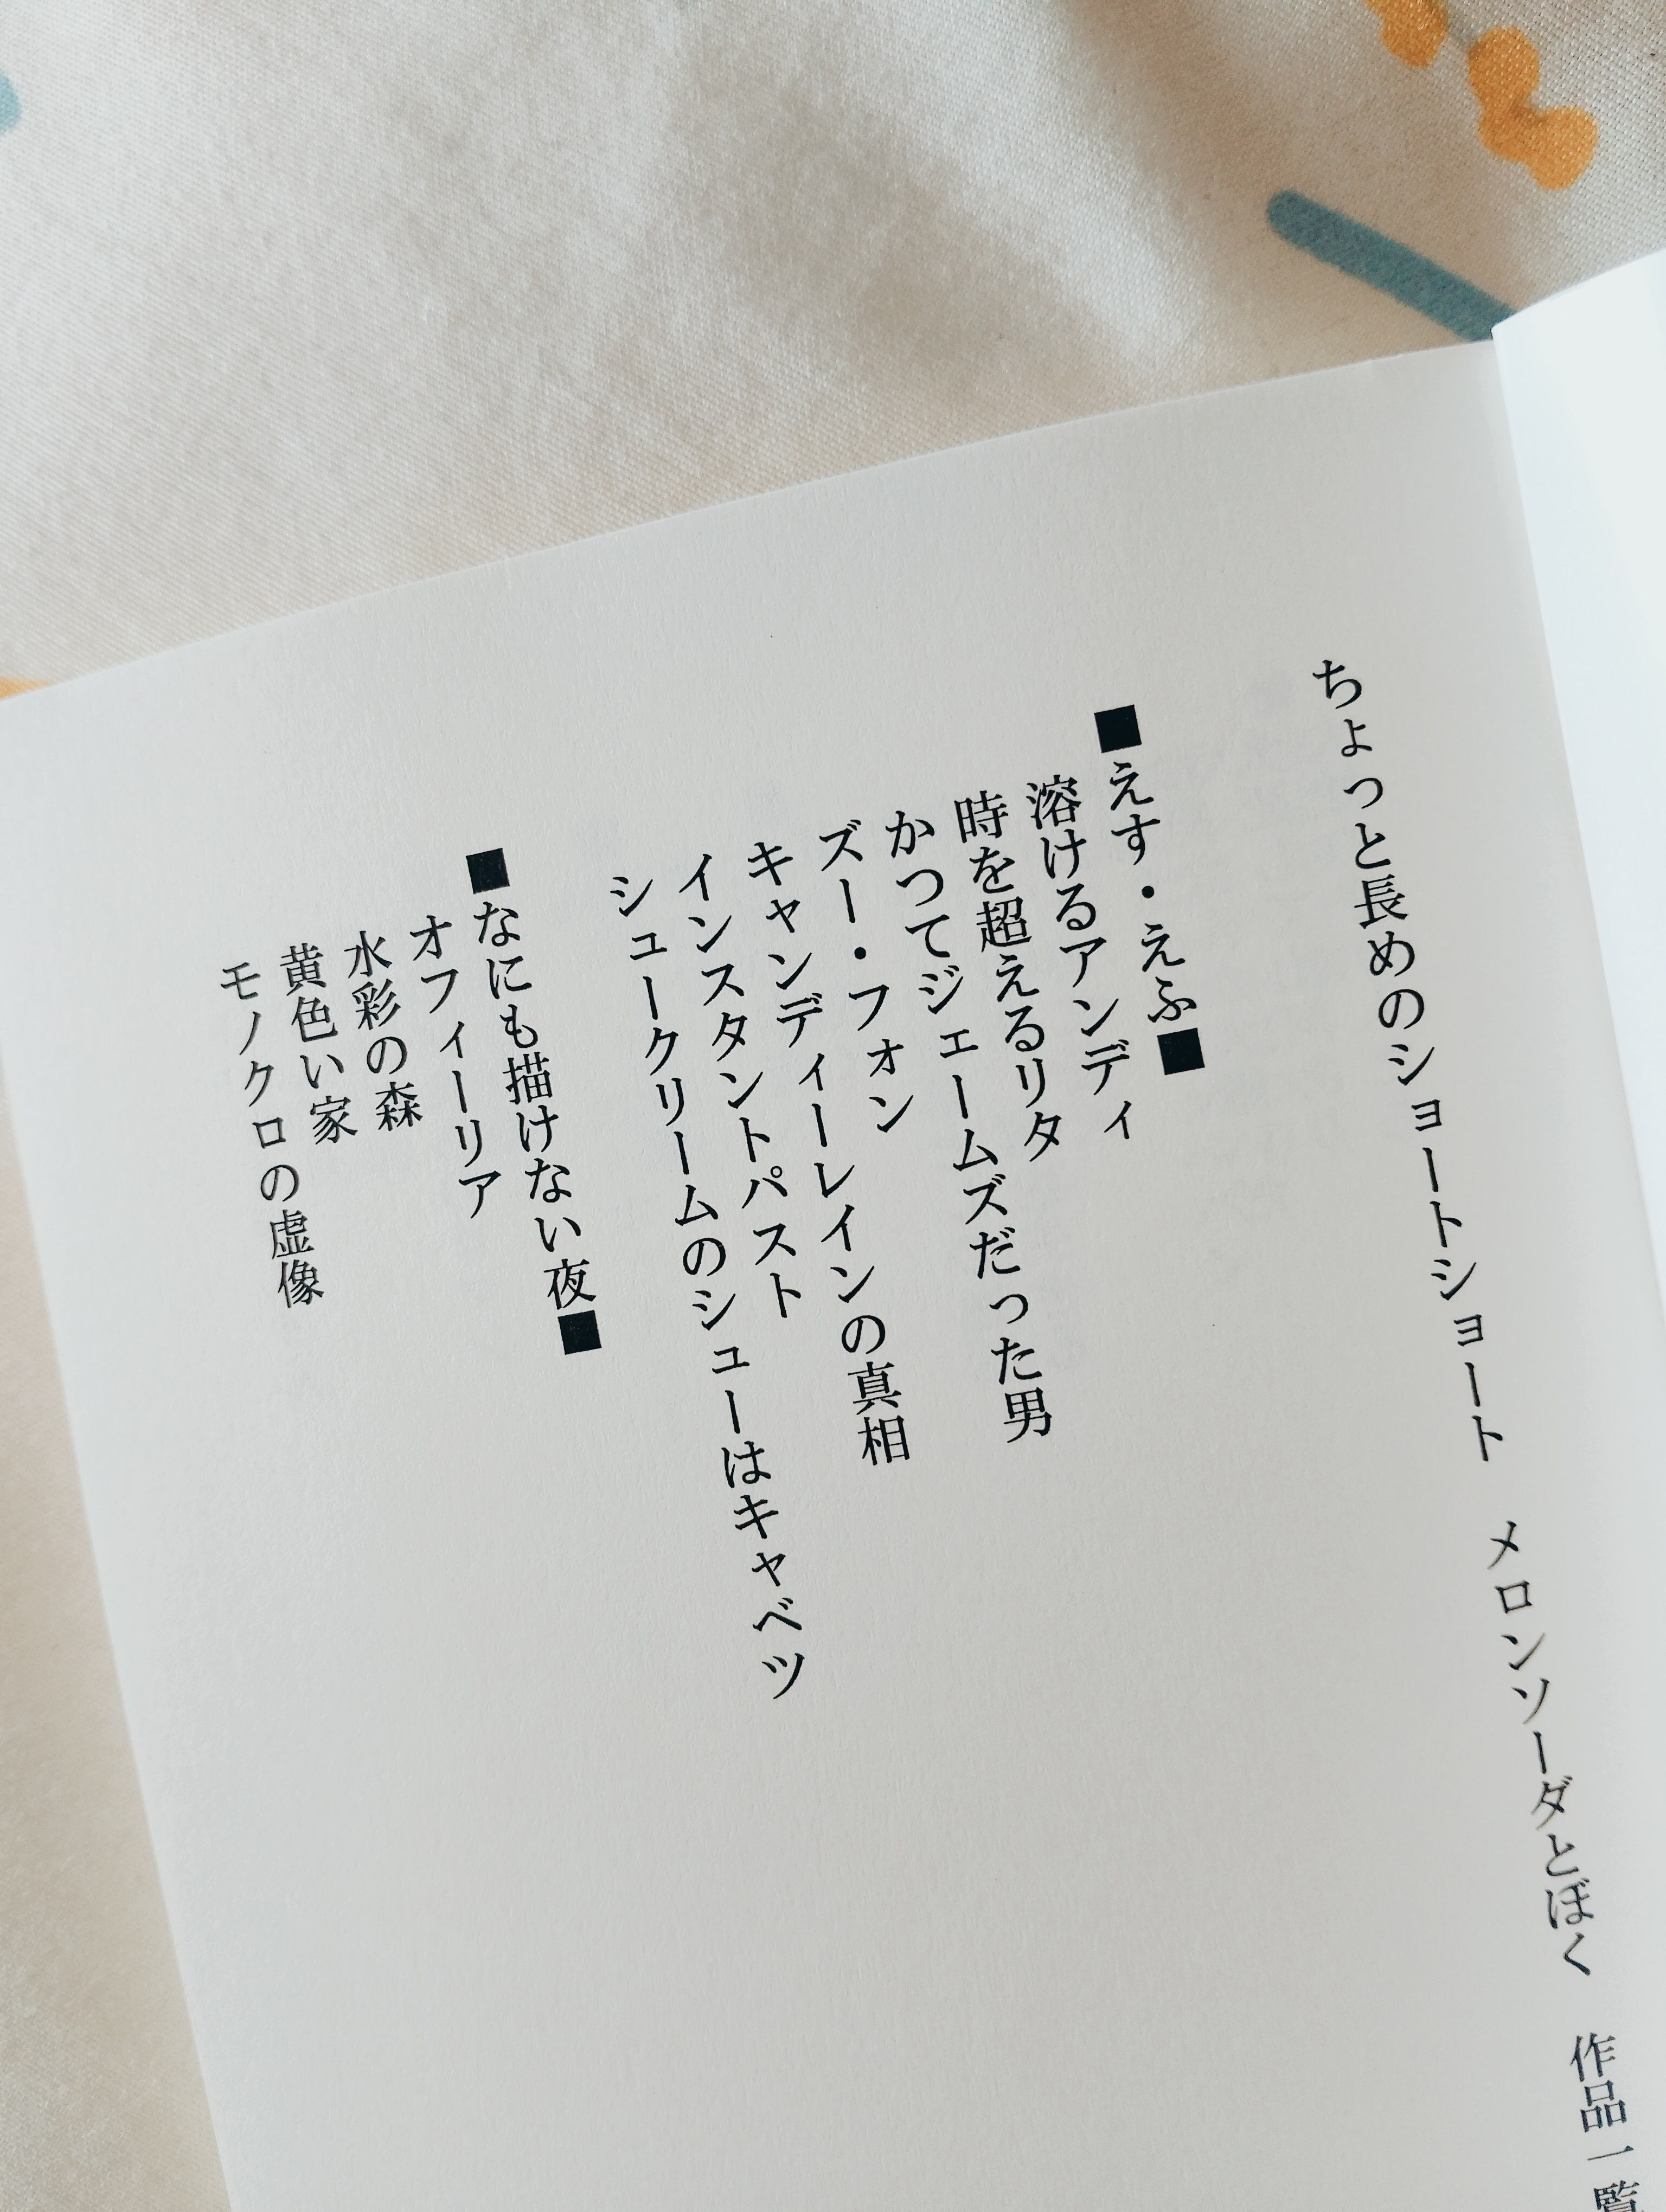 ちょっと長めのショートショート　メロンソーダとぼく　作品一覧
■えす・えふ■
溶けるアンディ
時を超えるリタ
かつてジェームズだった男
ズー・フォン
キャンディーレインの真相
インスタントパスト
シュークリームのシューはキャベツ
■なにも描けない夜■
オフィーリア
水彩の森
黄色い家
モノクロの虚像